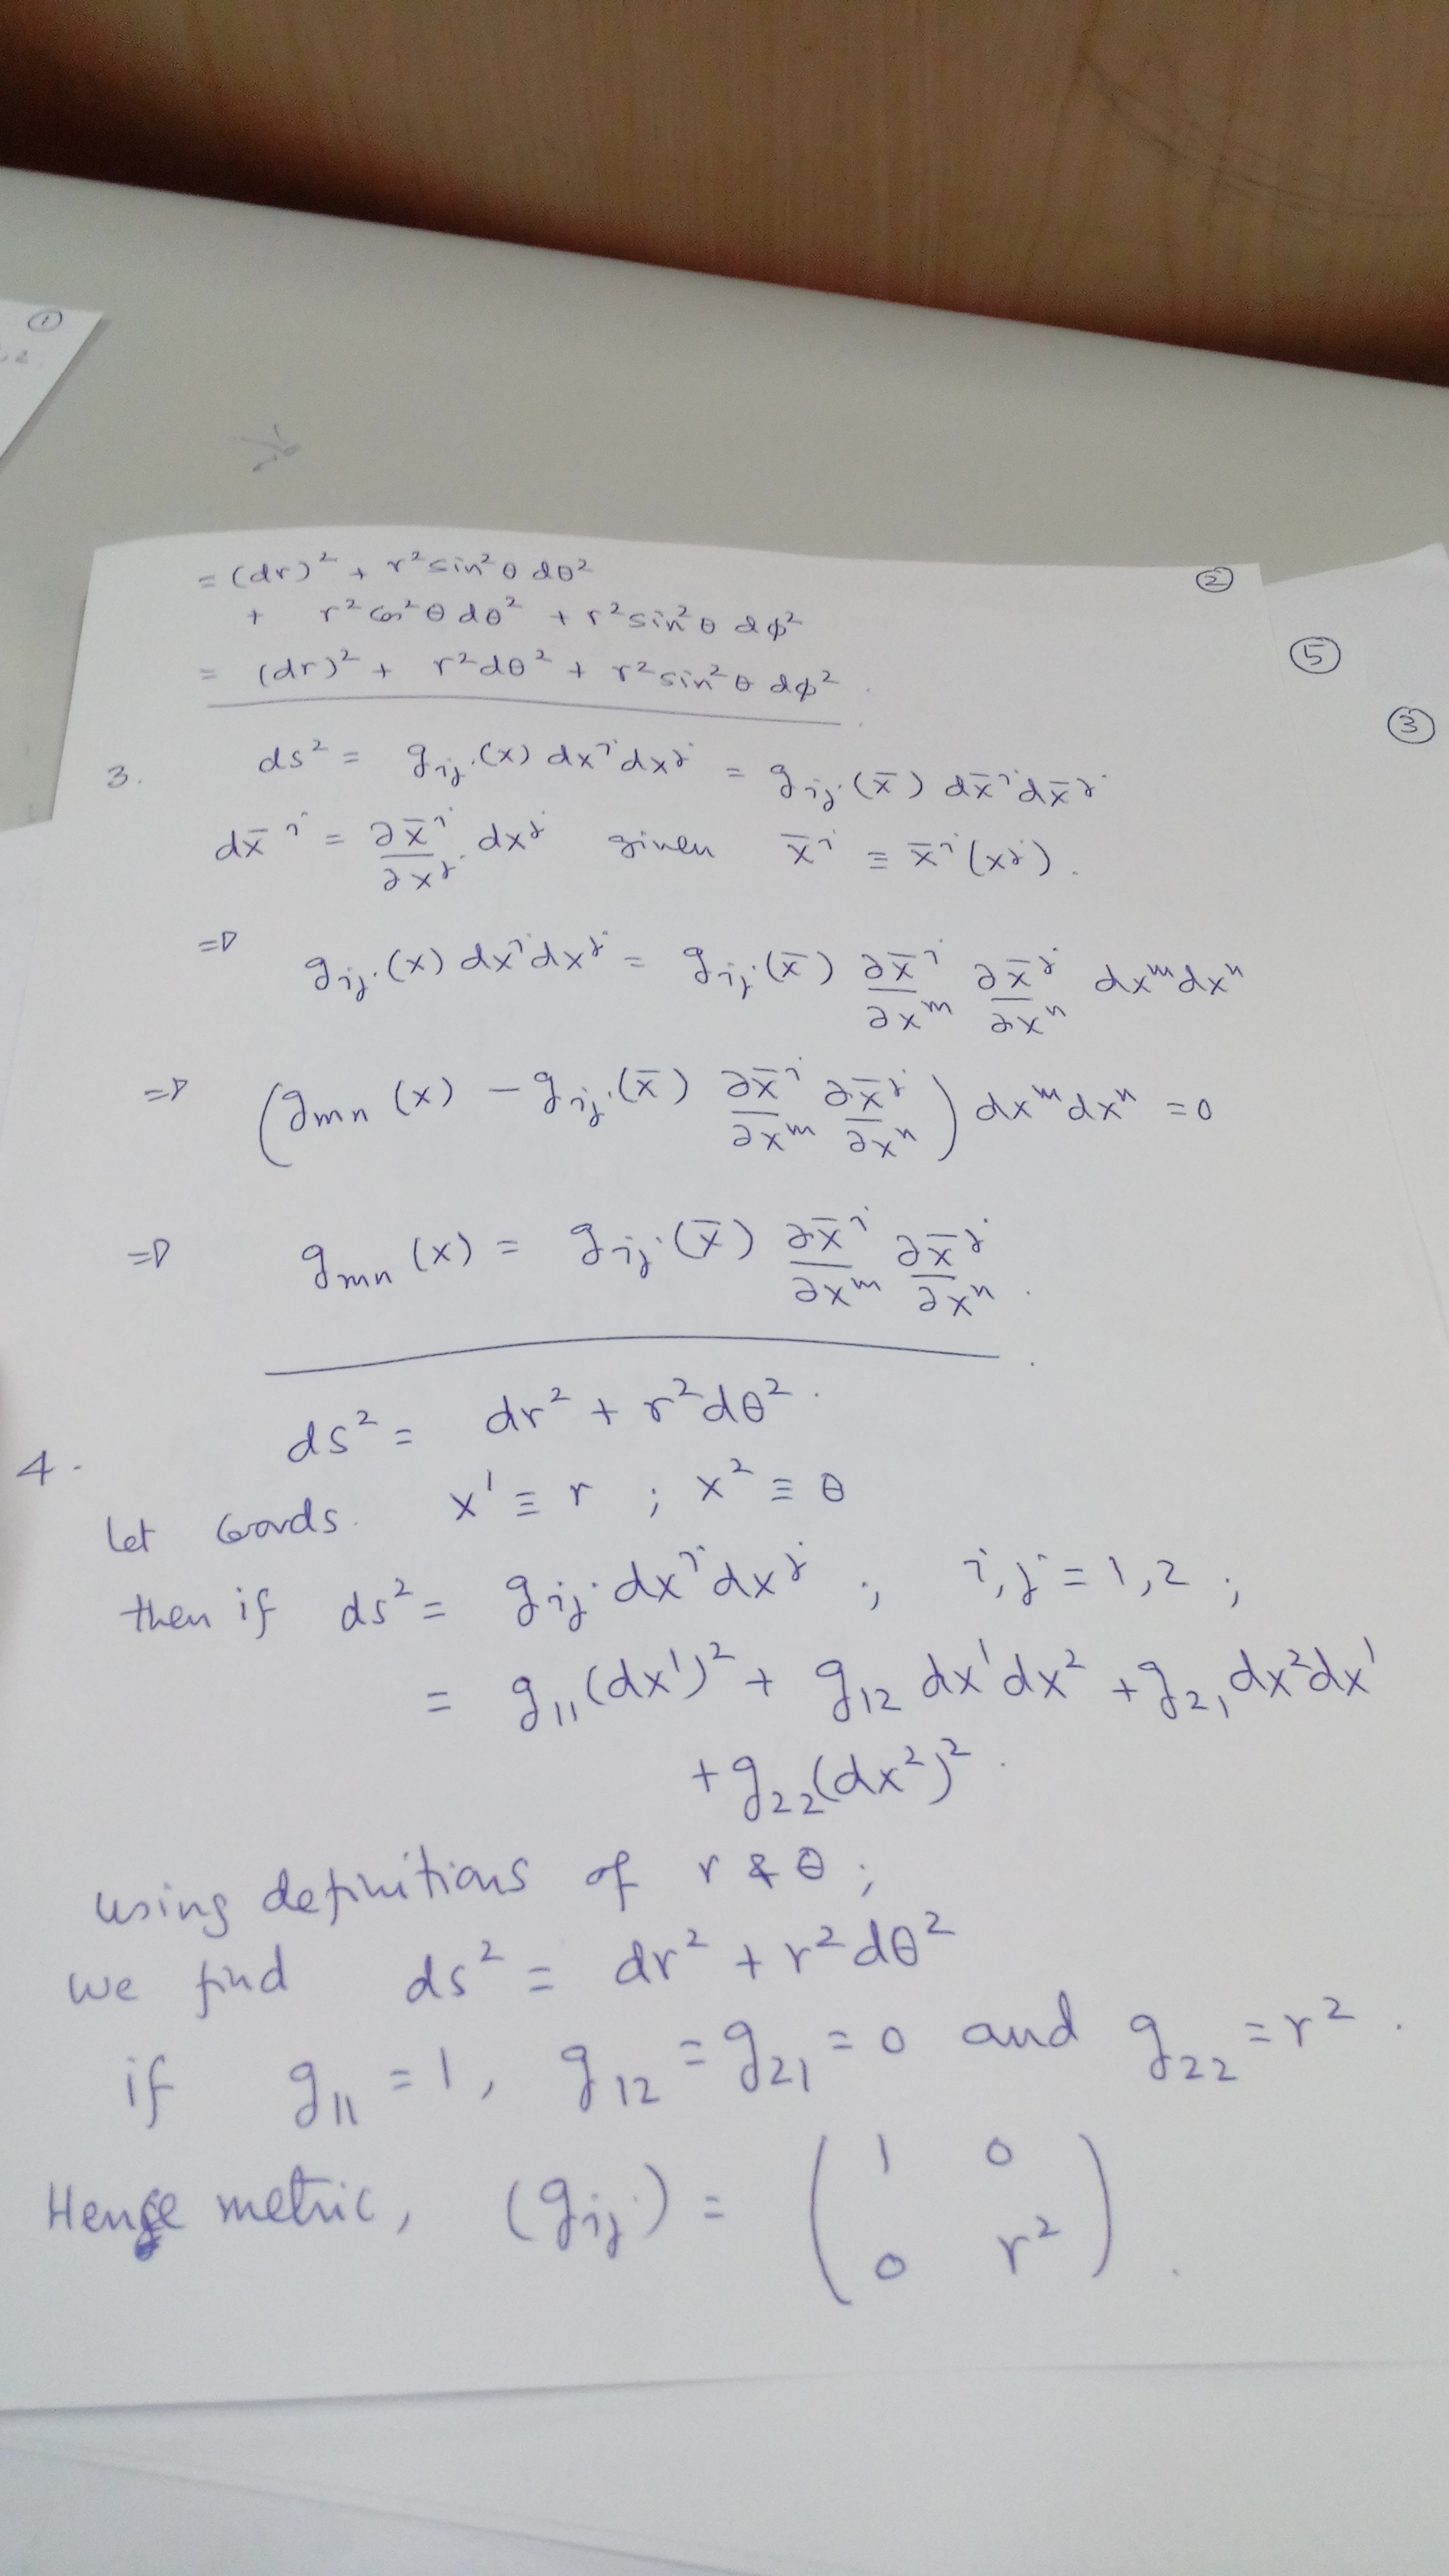 ①
,2
= (dr)² + r² sin²θ dθ²
②
+ r² cos²θ dθ² + r² sin²θ dϕ²
= (dr)² + r² dθ² + r² sin²θ dϕ².
⑤
③
3. ds² = g_ij(x) dxⁱ dxʲ = g_ij(x̄) dx̄ⁱ dx̄ʲ
dx̄ⁱ = ∂x̄ⁱ/∂xʲ dxʲ given x̄ⁱ ≡ x̄ⁱ(xʲ).
⇒ g_ij(x) dxⁱ dxʲ = g_ij(x̄) ∂x̄ⁱ/∂xᵐ ∂x̄ʲ/∂xⁿ dxᵐ dxⁿ
⇒ (g_mn(x) − g_ij(x̄) ∂x̄ⁱ/∂xᵐ ∂x̄ʲ/∂xⁿ) dxᵐ dxⁿ = 0
⇒ g_mn(x) = g_ij(x̄) ∂x̄ⁱ/∂xᵐ ∂x̄ʲ/∂xⁿ.
4. ds² = dr² + r² dθ².
Let coords. x¹ ≡ r ; x² ≡ θ
then if ds² = g_ij dxⁱ dxʲ ; i,j = 1,2 ;
= g₁₁(dx¹)² + g₁₂ dx¹ dx² + g₂₁ dx² dx¹
+ g₂₂(dx²)².
using definitions of r & θ ;
we find ds² = dr² + r² dθ²
if g₁₁ = 1, g₁₂ = g₂₁ = 0 and g₂₂ = r².
Hence metric, (g_ij) = ( 1 0
0 r² ).